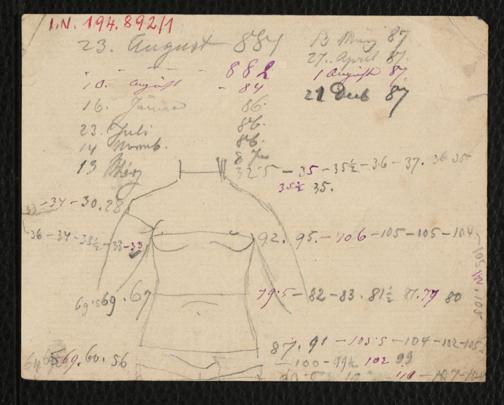 I.N. 194.892/1
23. August 884
13 März 87
27. April 87.
882
1 August 87.
10. August - 84
21 Deeb 87
16. Jänner 86.
23. Juli 86.
14 Novemb. 86.
13 März
32.5 - 35 - 35½ - 36 - 37. 36 35
35½ 35.
- 34 - 30.28
36 - 34 - 33½ - 33 - 33
92. 95. - 106 - 105 - 105 - 104
69.569. 67
79.5 - 82 - 83. 81½ 81. 79 80
87. 91 - 103.5 - 104 - 102 - 105
69. 60. 56
- 100 - 99½ 102 99